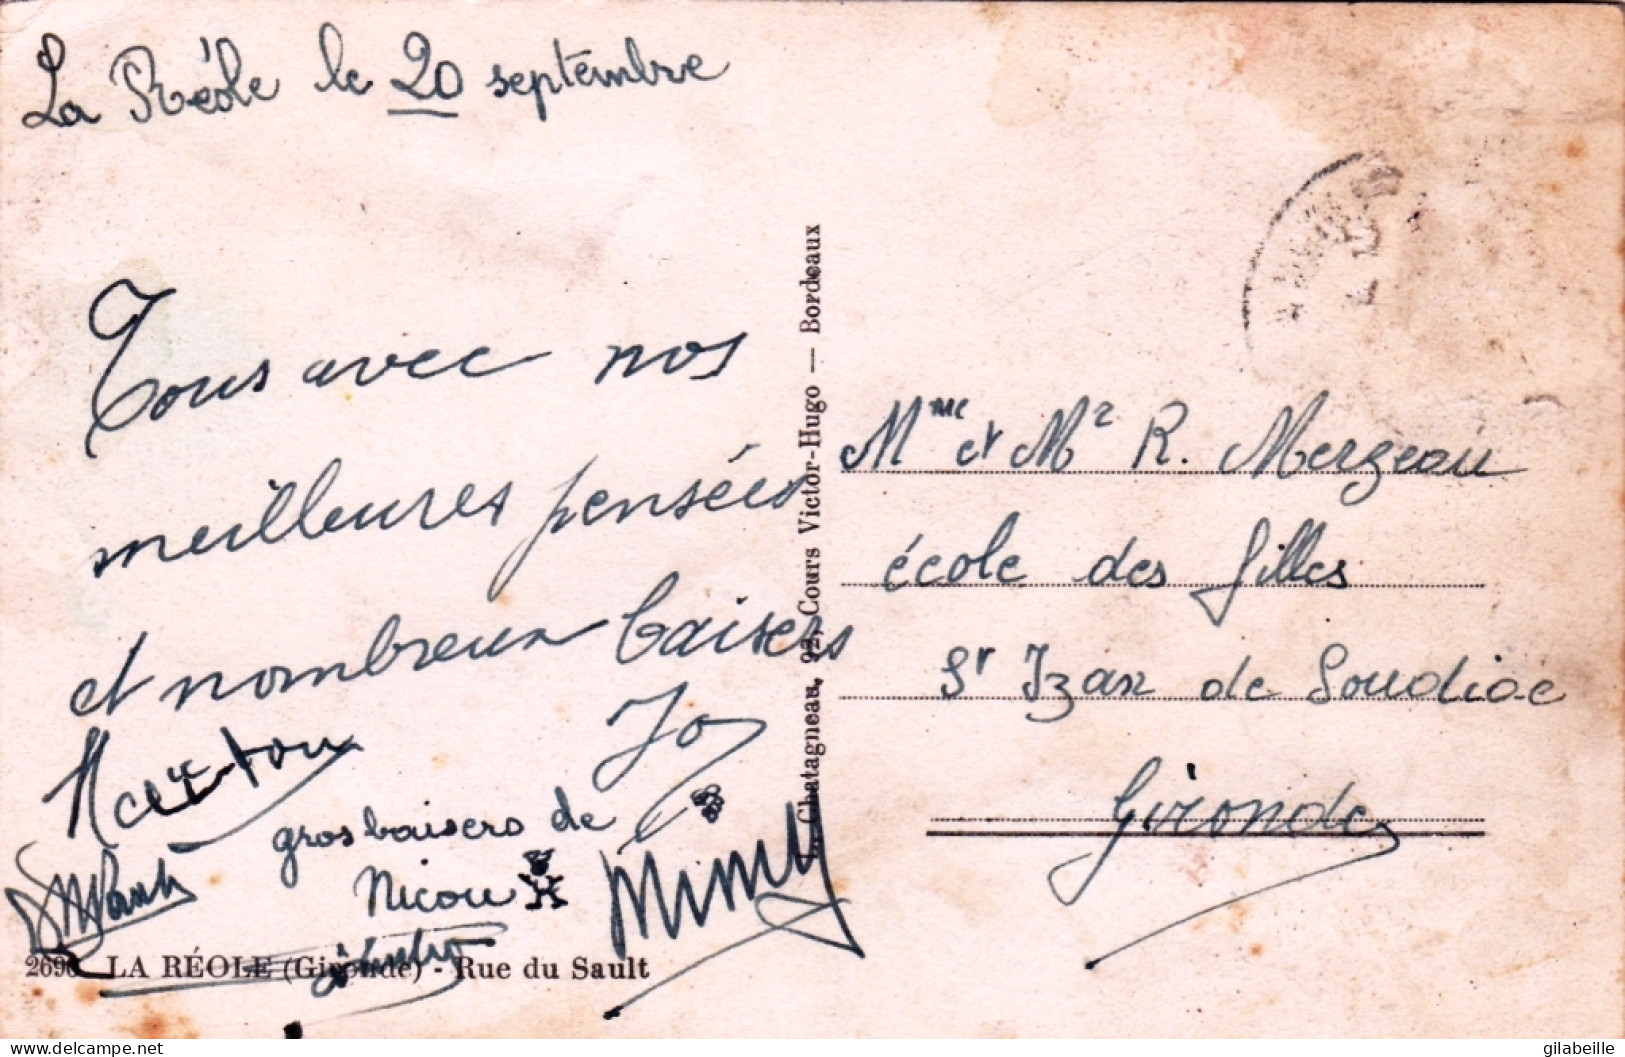 La Réole le 20 septembre
Tous avec nos
meilleures pensées
et nombreux baisers
Jo
gros baisers de
Nicou
Mimy
2696 LA RÉOLE (Gironde) - Rue du Sault
Chatagneau, 92, Cours Victor-Hugo — Bordeaux
Mme et Mr R. Mergeau
école des filles
St Izan de Soudiac
Gironde
www.delcampe.net
gilabeille